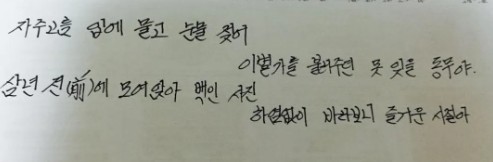 자주고름 입에 물고 눈물 젖어
이별가를 불러주던 못 잊을 동무야.
삼년 전(前)에 모여앉아 백인 사진
하염없이 바라보니 즐거운 시절아